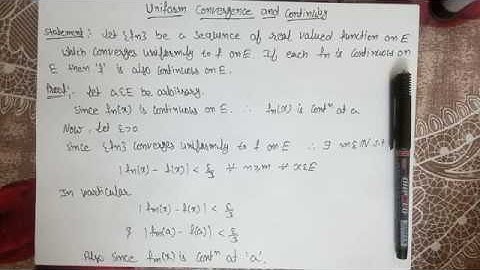 Uniform Convergence and Continuity
Statement: Let {fn} be a sequence of real valued function on E
which converges uniformly to f on E. If each fn is continuous on
E then 'f' is also continuous on E.
Proof: Let a∈E be arbitrary.
Since fn(x) is continuous on E. ∴ fn(x) is contⁿ at a
Now, Let ε>0
Since {fn} converges uniformly to f on E ∴ ∃ m∈ℕ s.t
|fn(x) - f(x)| < ε/3 ∀ n≥m ∀ x∈E
In particular
|fm(x) - f(x)| < ε/3
& |fm(a) - f(a)| < ε/3
Also since fm(x) is contⁿ at 'a'.